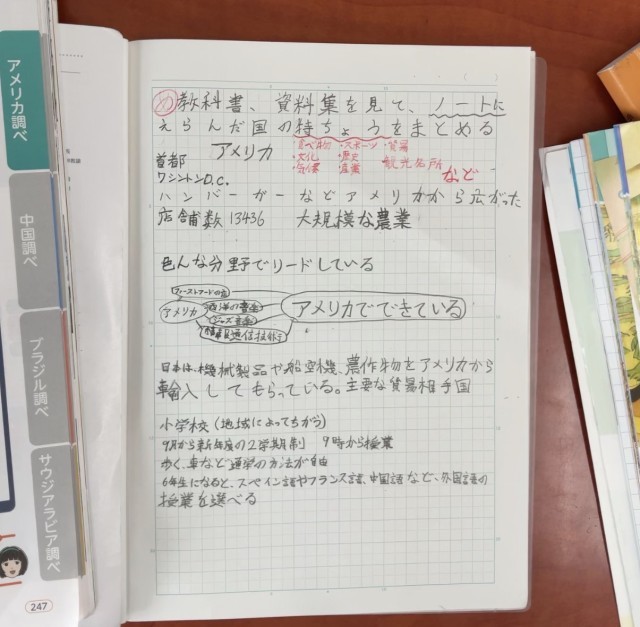 アメリカ調べ
中国調べ
ブラジル調べ
サウジアラビア調べ
247
め 教科書、資料集を見て、ノートに
えらんだ国の特ちょうをまとめる
アメリカ
・食べ物 ・スポーツ ・貿易
・文化 ・歴史 観光名所
・気候 ・産業 など
首都
ワシントンD.C.
ハンバーガーなどアメリカから広がった
店舗数 13436 大規模な農業
色んな分野でリードしている
ファーストフードの店
アメリカ
西洋の音楽
ジャズ音楽
情報通信技術
アメリカでできている
日本は、機械製品や航空機、農作物をアメリカから
輸入してもらっている。主要な貿易相手国
小学校(地域によってちがう)
9月から新年度の2学期制 9時から授業
歩く、車など通学の方法が自由
6年生になると、スペイン語やフランス語、中国語など、外国語の
授業を選べる